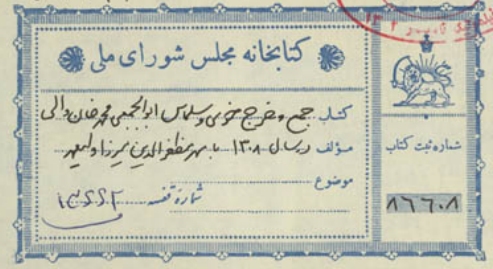 کتابخانه مجلس شورای ملی
کتاب جمع و خرج خوی و سلماس ابوالجمعی محمد خان والی
مؤلف در سال ۱۳۰۸ با مهر مظفرالدین میرزا ولیعهد
موضوع
شمارهٔ قفسه
شماره ثبت کتاب
۸۶۶۰۸